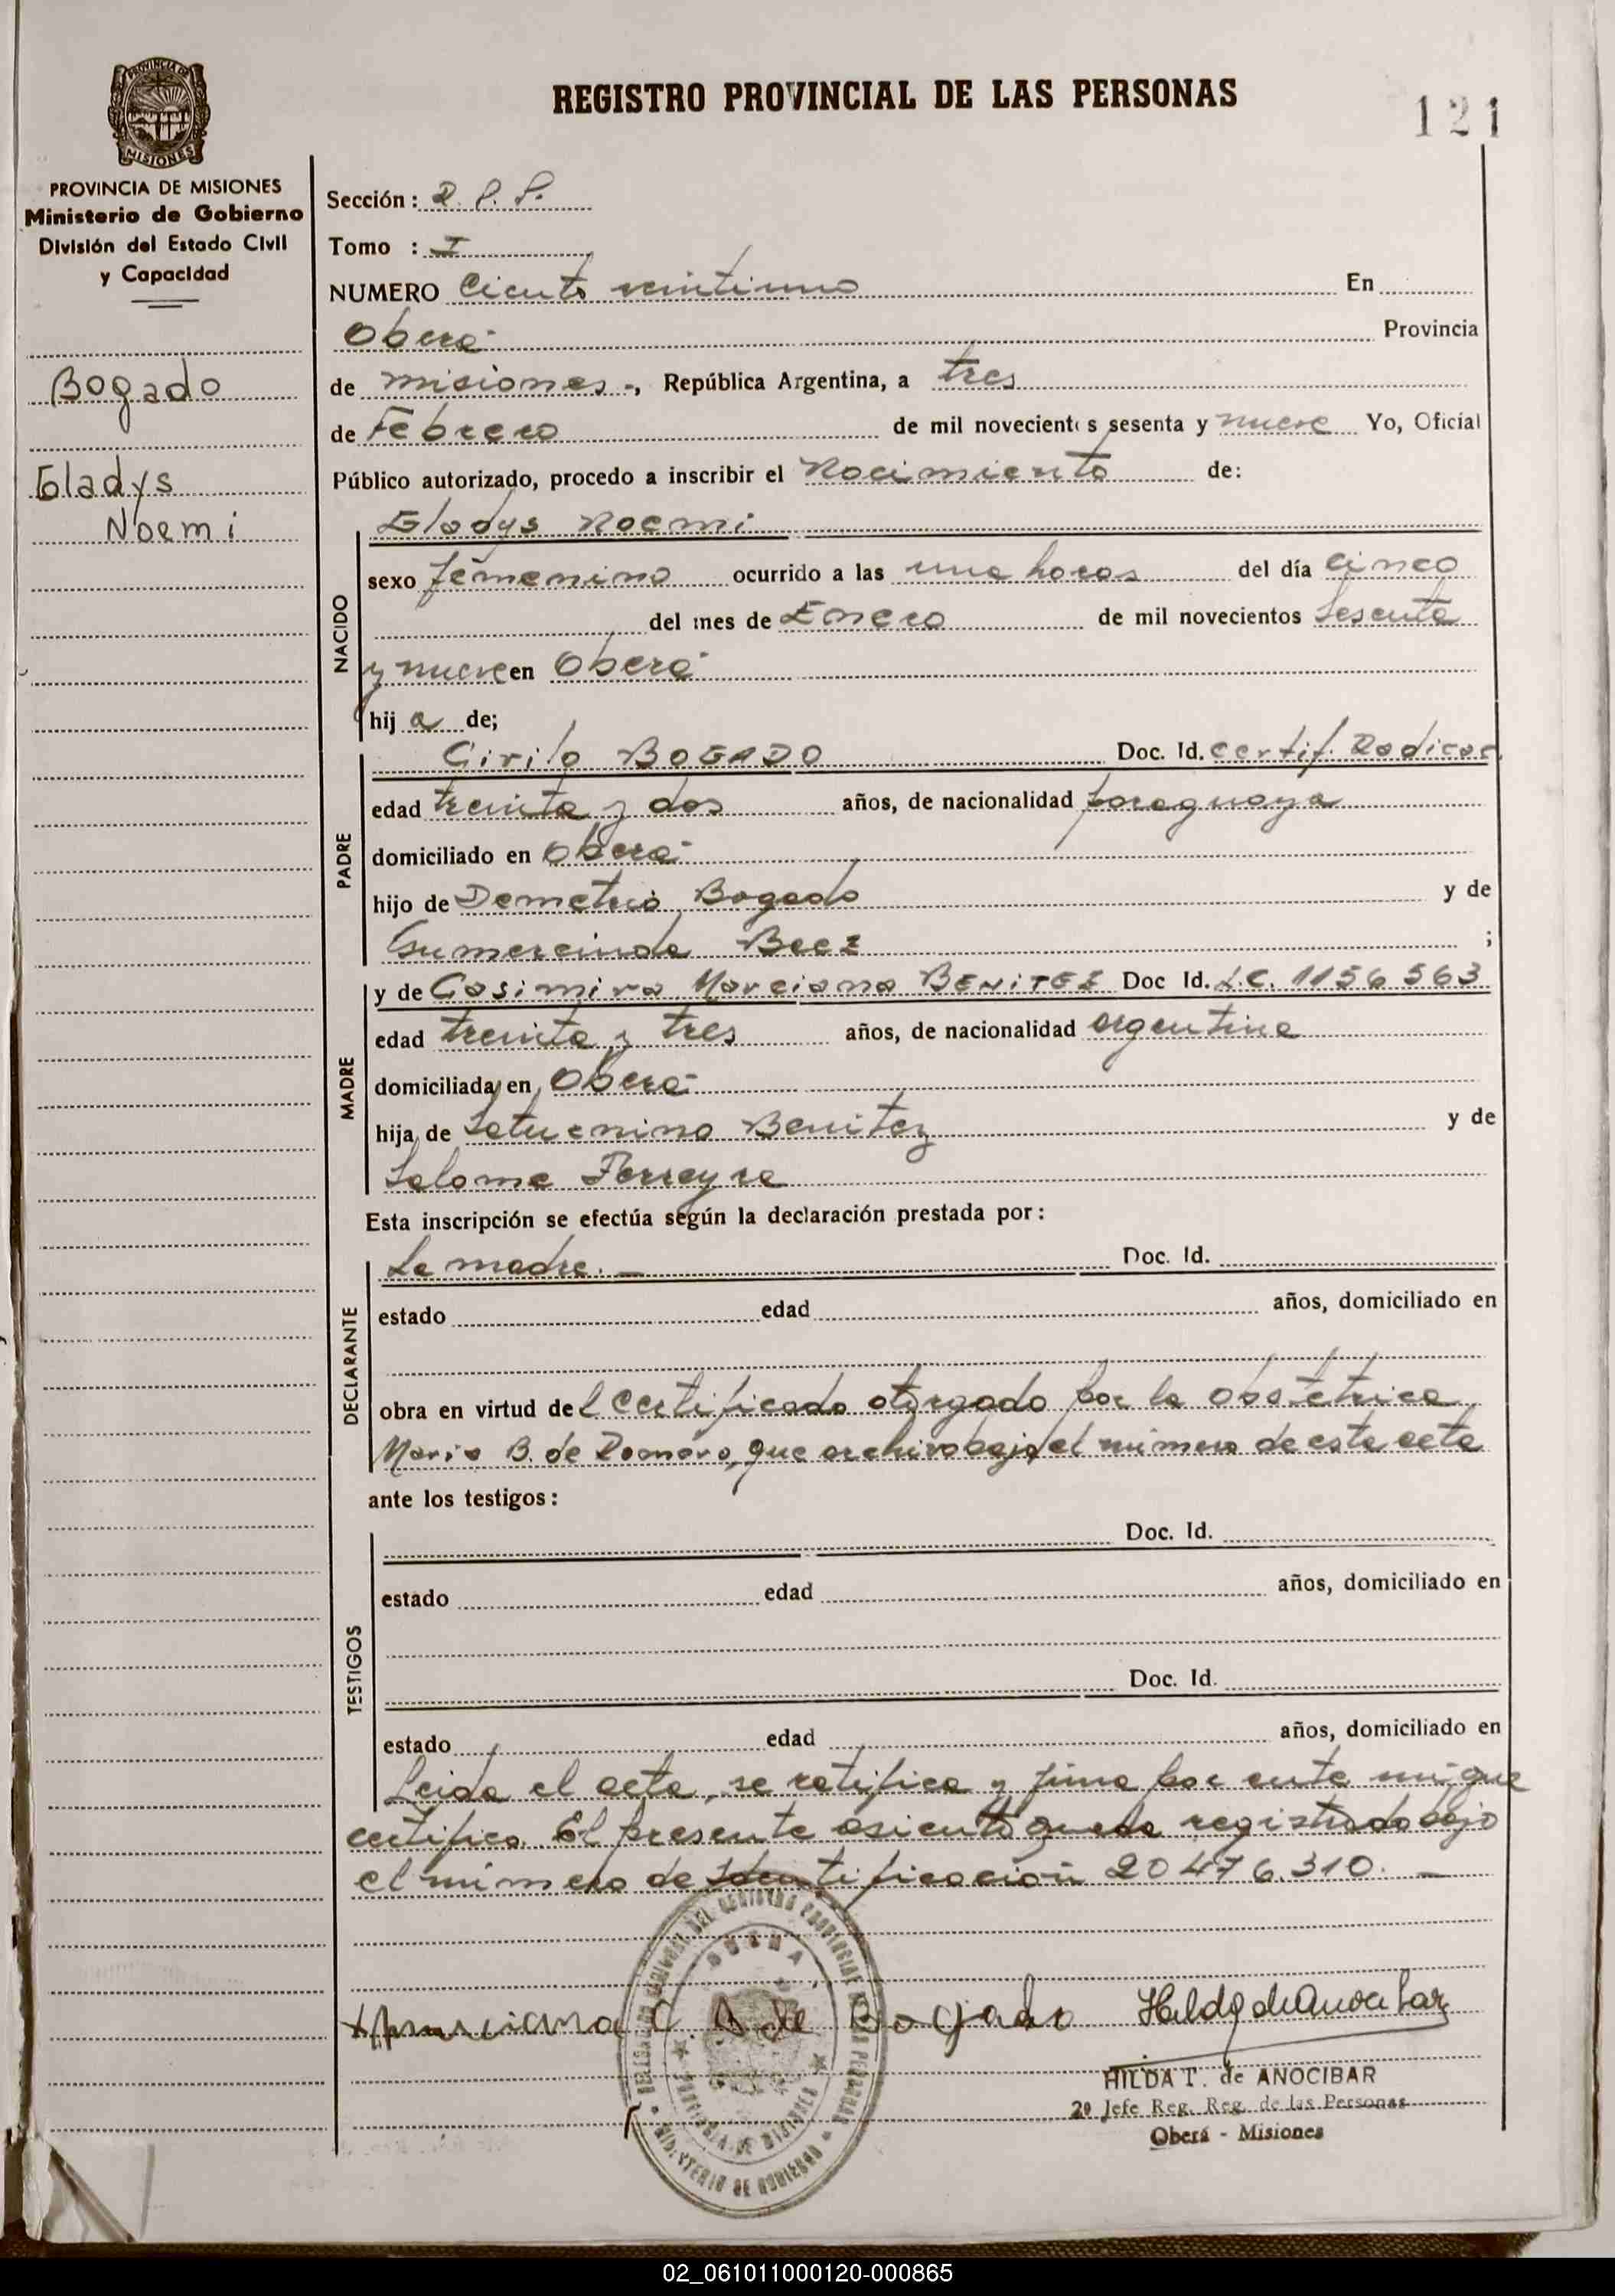 REGISTRO PROVINCIAL DE LAS PERSONAS
121
PROVINCIA DE MISIONES
MISIONES
PROVINCIA DE MISIONES
Ministerio de Gobierno
División del Estado Civil
y Capacidad
Bogado
Gladys
Noemi
Sección: R. P. P.
Tomo : I
NUMERO Ciento veintiuno En
Oberá
Provincia
de misiones-, República Argentina, a tres
de Febrero de mil novecient s sesenta y nueve Yo, Oficial
Público autorizado, procedo a inscribir el Nacimiento de:
NACIDO
Gladys Noemi
sexo femenino ocurrido a las una horas del día cinco
del mes de Enero de mil novecientos sesenta
y nueve en Oberá
hij a de;
PADRE
Cirilo BOGADO Doc. Id. Certif. Radicac.
edad treinta y dos años, de nacionalidad paraguaya
domiciliado en Oberá
hijo de Demetrio Bogado y de
Gumercinda Baez ;
MADRE
y de Casimira Marciana BENITEZ Doc Id. L.C. 1156563
edad treinta y tres años, de nacionalidad argentina
domiciliada en Oberá
hija de Saturnino Benitez y de
Salome Ferreyra
Esta inscripción se efectúa según la declaración prestada por:
DECLARANTE
La madre.- Doc. Id.
estado edad años, domiciliado en
obra en virtud del certificado otorgado por la obstetrica
Maria B. de Romero, que archivo bajo el número de este acta
ante los testigos:
TESTIGOS
Doc. Id.
estado edad años, domiciliado en
Doc. Id.
estado edad años, domiciliado en
Leida el acta, se ratifica y firma por ante mi que
certifico. El presente asiento queda registrado bajo
el número de Identificación 20476.310.-
Marciana C. B de Bogado
Hilda de Anocibar
HILDA T. de ANOCIBAR
2º Jefe Reg. Reg. de las Personas
Oberá - Misiones
OBERA
PROVINCIA DE MISIONES
MINISTERIO DE GOBIERNO
02_061011000120-000865